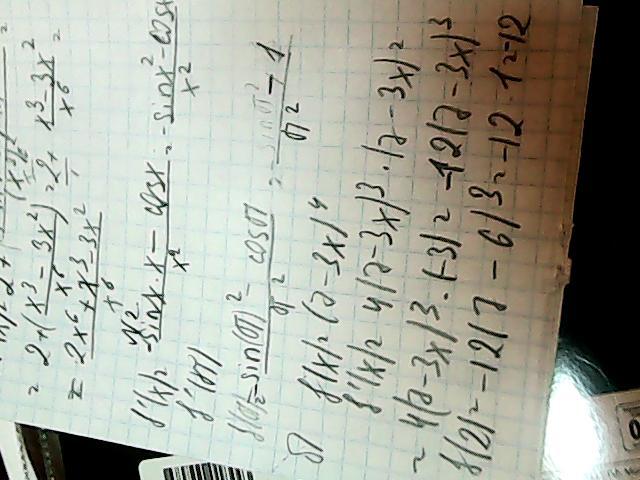 = 2+(x³-3x²/x⁶) = 2+ x³-3x²/x⁶ =
= 2x⁶+x³-3x²/x⁶
f'(x)= -sinx·x-cosx/x² = -sinx²-cosx/x²
f'(π)
f(π)= -sin(π)²- cosπ/π² = -sinπ²-1/π²
б) f(x)= (7-3x)⁴
f'(x)= 4(7-3x)³·(7-3x)=
= 4(7-3x)³·(-3)= -12(7-3x)³
f(2)= -12(7-6)³= -12·1=-12